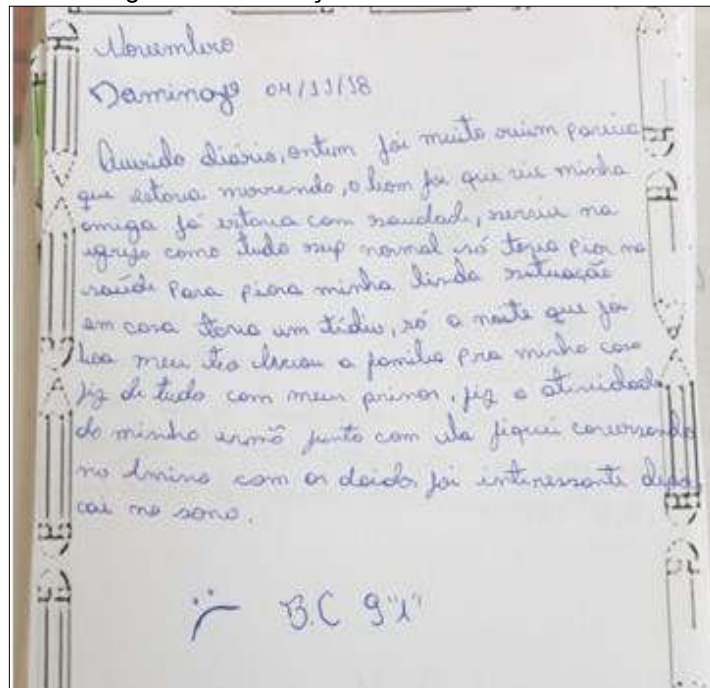 Novembro
Domingo 04/11/18
Querido diário, ontem foi muito ruim parecia
que estava morrendo, o bom foi que vie minha
amiga já estava com saudade, servir na
igreja como tudo sup normal só tava pior na
saúde Para piora minha linda situação
em casa tava um tédio, só a noite que foi
boa meu tio levou a familia pra minha casa
fiz de tudo com meus primos, fiz a atividade
da minha irmã junto com ela fiquei conversando
no com os doidos foi interessante
cai no sono.
:( B.C 9"1"